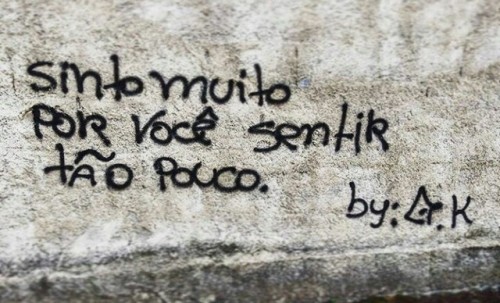 sinto muito
POR VOCÊ sentiR
tÃO POUCO.
by: Gr.K